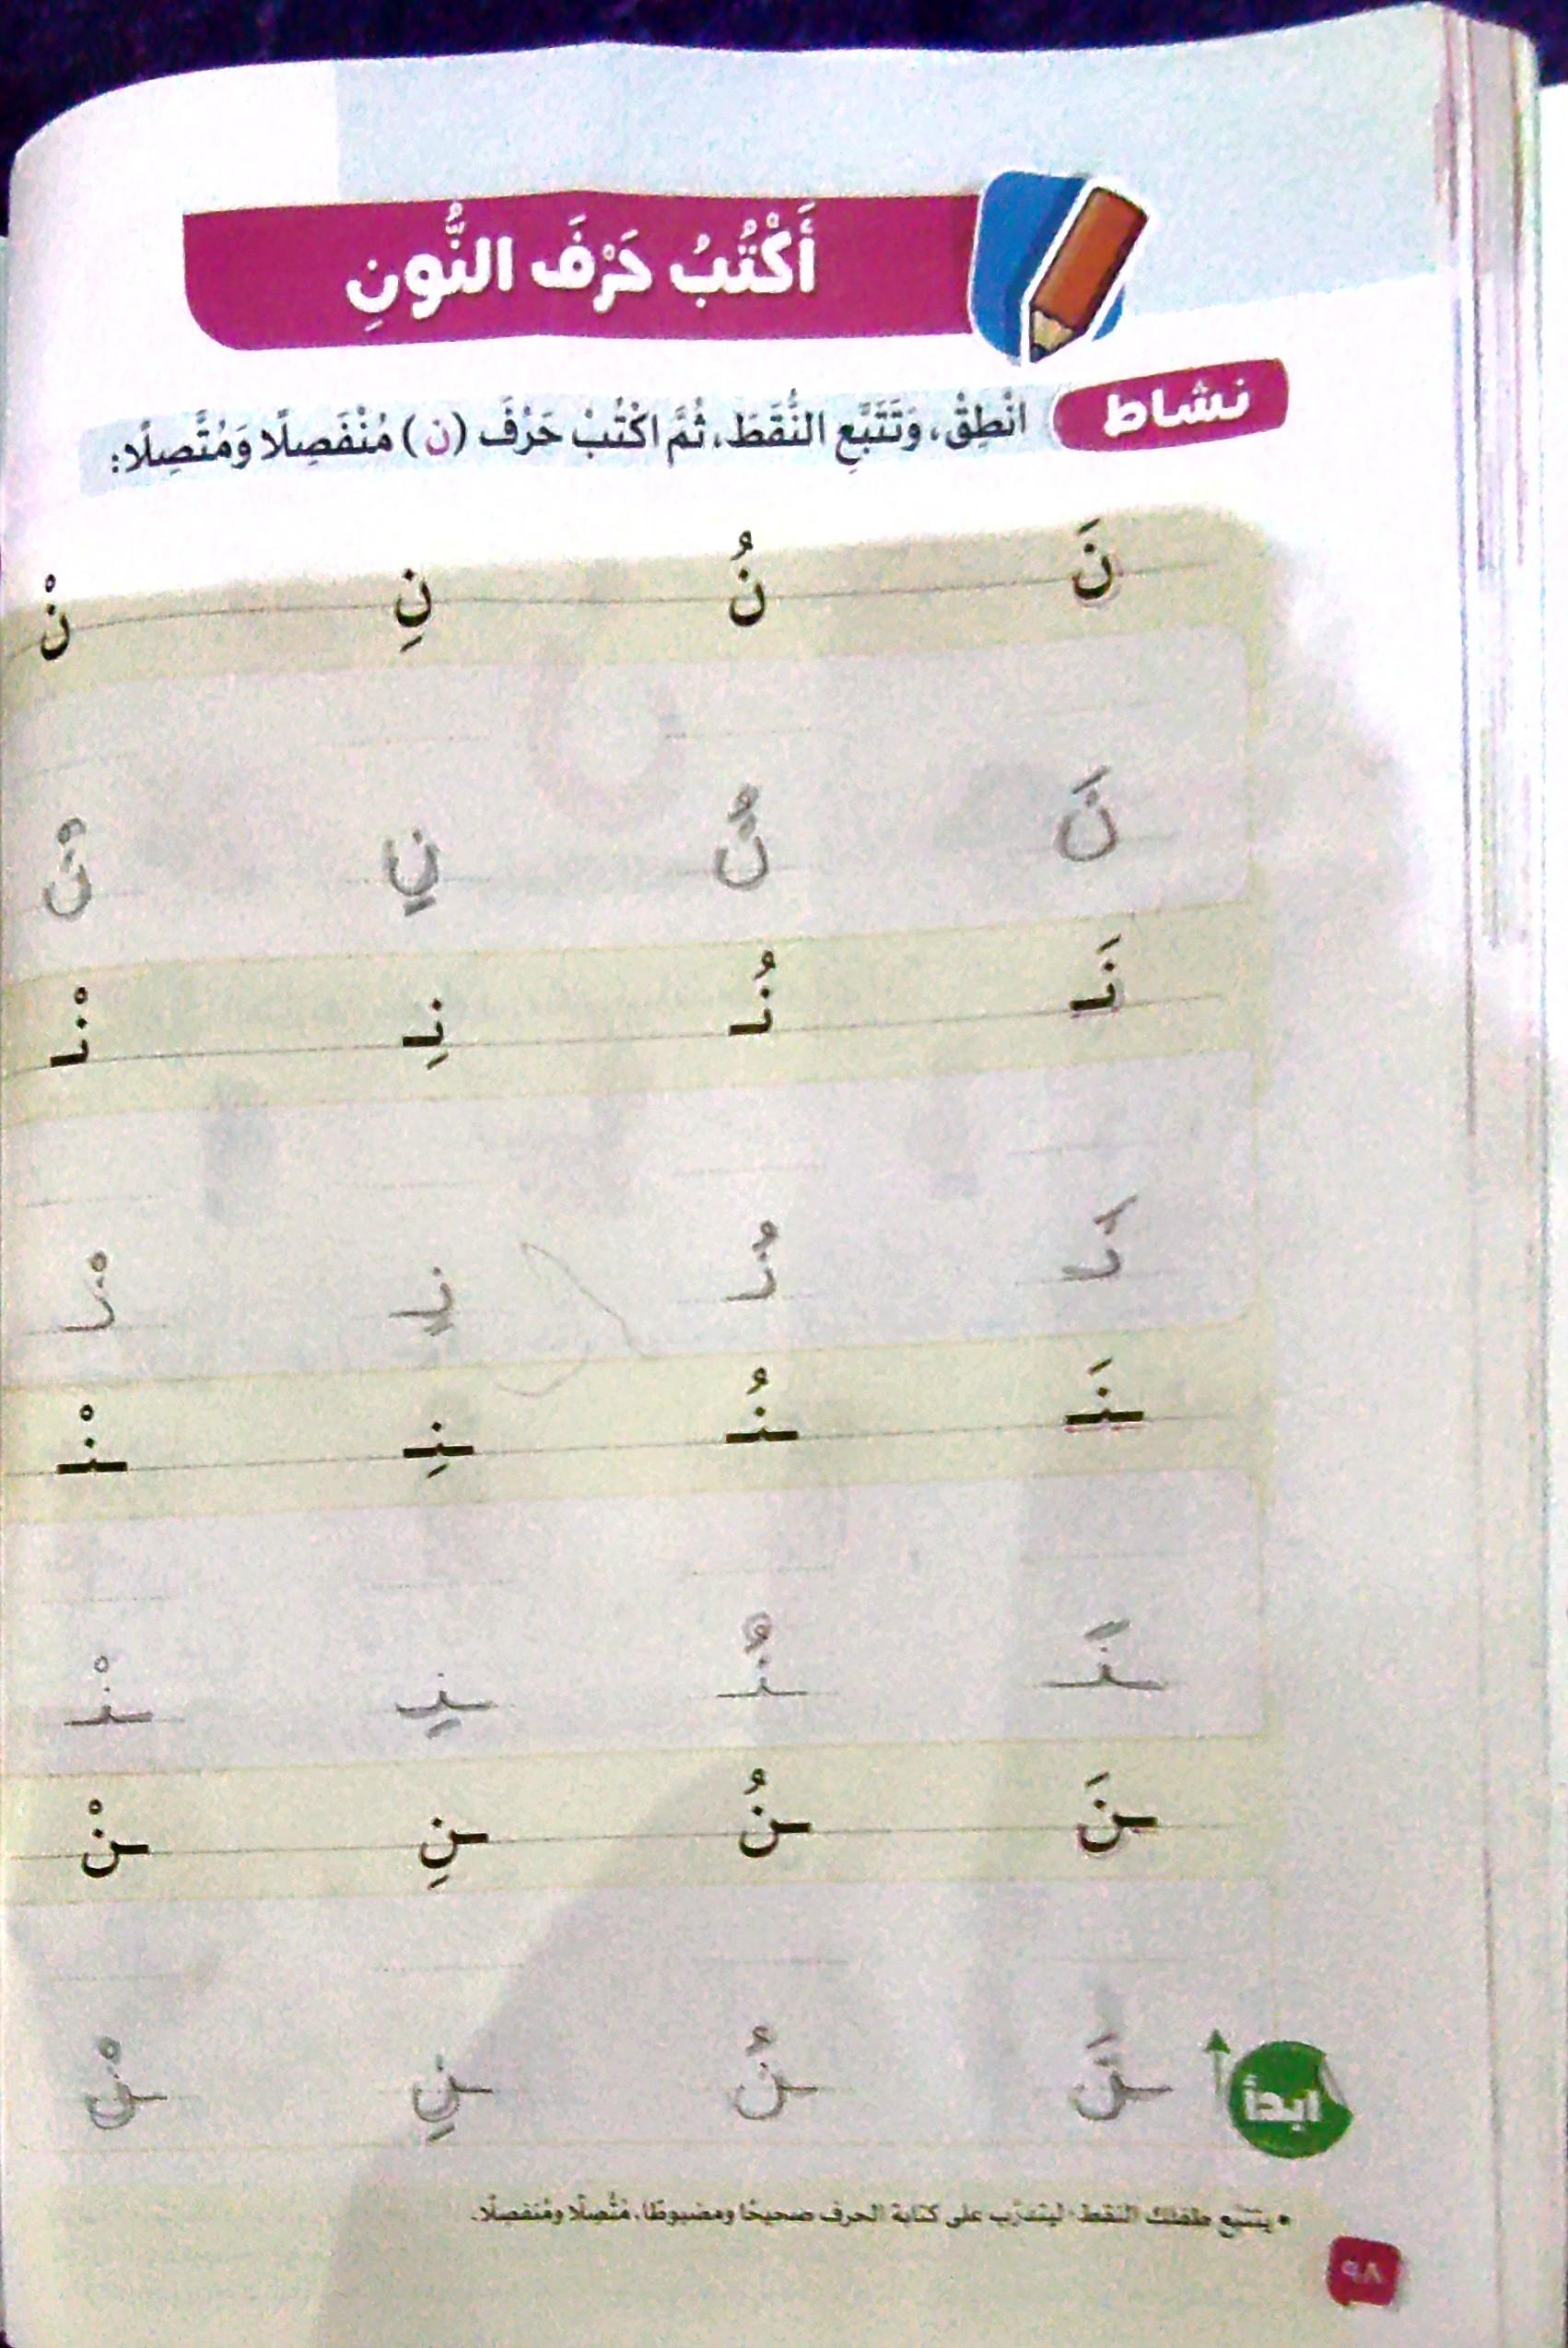 أَكْتُبُ حَرْفَ النُّونِ
نشاط انْطِقْ، وَتَتَبَّعِ النُّقَطَ، ثُمَّ اكْتُبْ حَرْفَ (ن) مُنْفَصِلًا وَمُتَّصِلًا:
نَ نُ نِ نْ
نَ نُ نِ نْ
نَـ نُـ نِـ نْـ
نَـ نُـ نِـ نْـ
ـنَـ ـنُـ ـنِـ ـنْـ
ـنَـ ـنُـ ـنِـ ـنْـ
ـنَ ـنُ ـنِ ـنْ
ـنَ ـنُ ـنِ ـنْ
ابدأ
• يتتبع طفلك النقط؛ ليتدرب على كتابة الحرف صحيحًا ومضبوطًا، مُتَّصِلًا ومُنفصِلًا.
٩٨